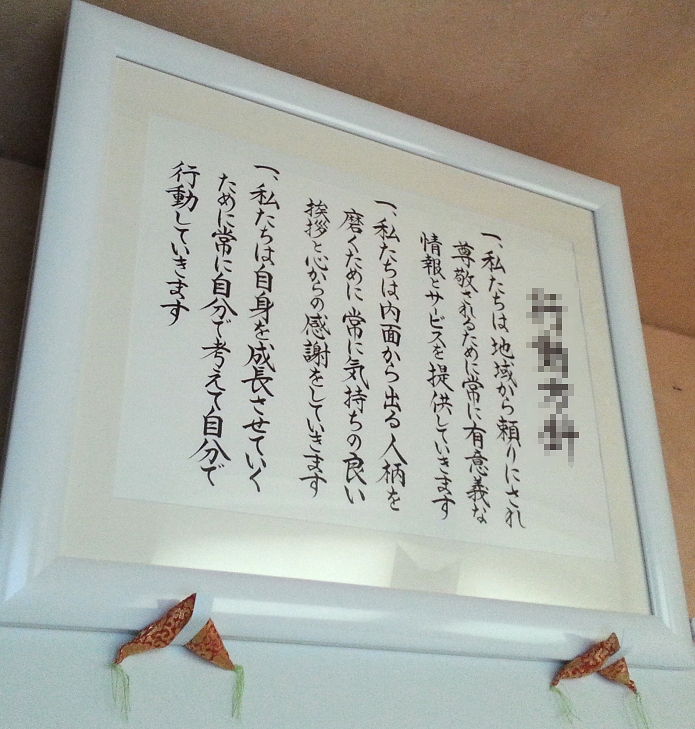 一、私たちは地域から頼りにされ
尊敬されるために常に有意義な
情報とサービスを提供していきます
一、私たちは内面から出る人柄を
磨くために常に気持ちの良い
挨拶と心からの感謝をしていきます
一、私たちは自身を成長させていく
ために常に自分で考えて自分で
行動していきます